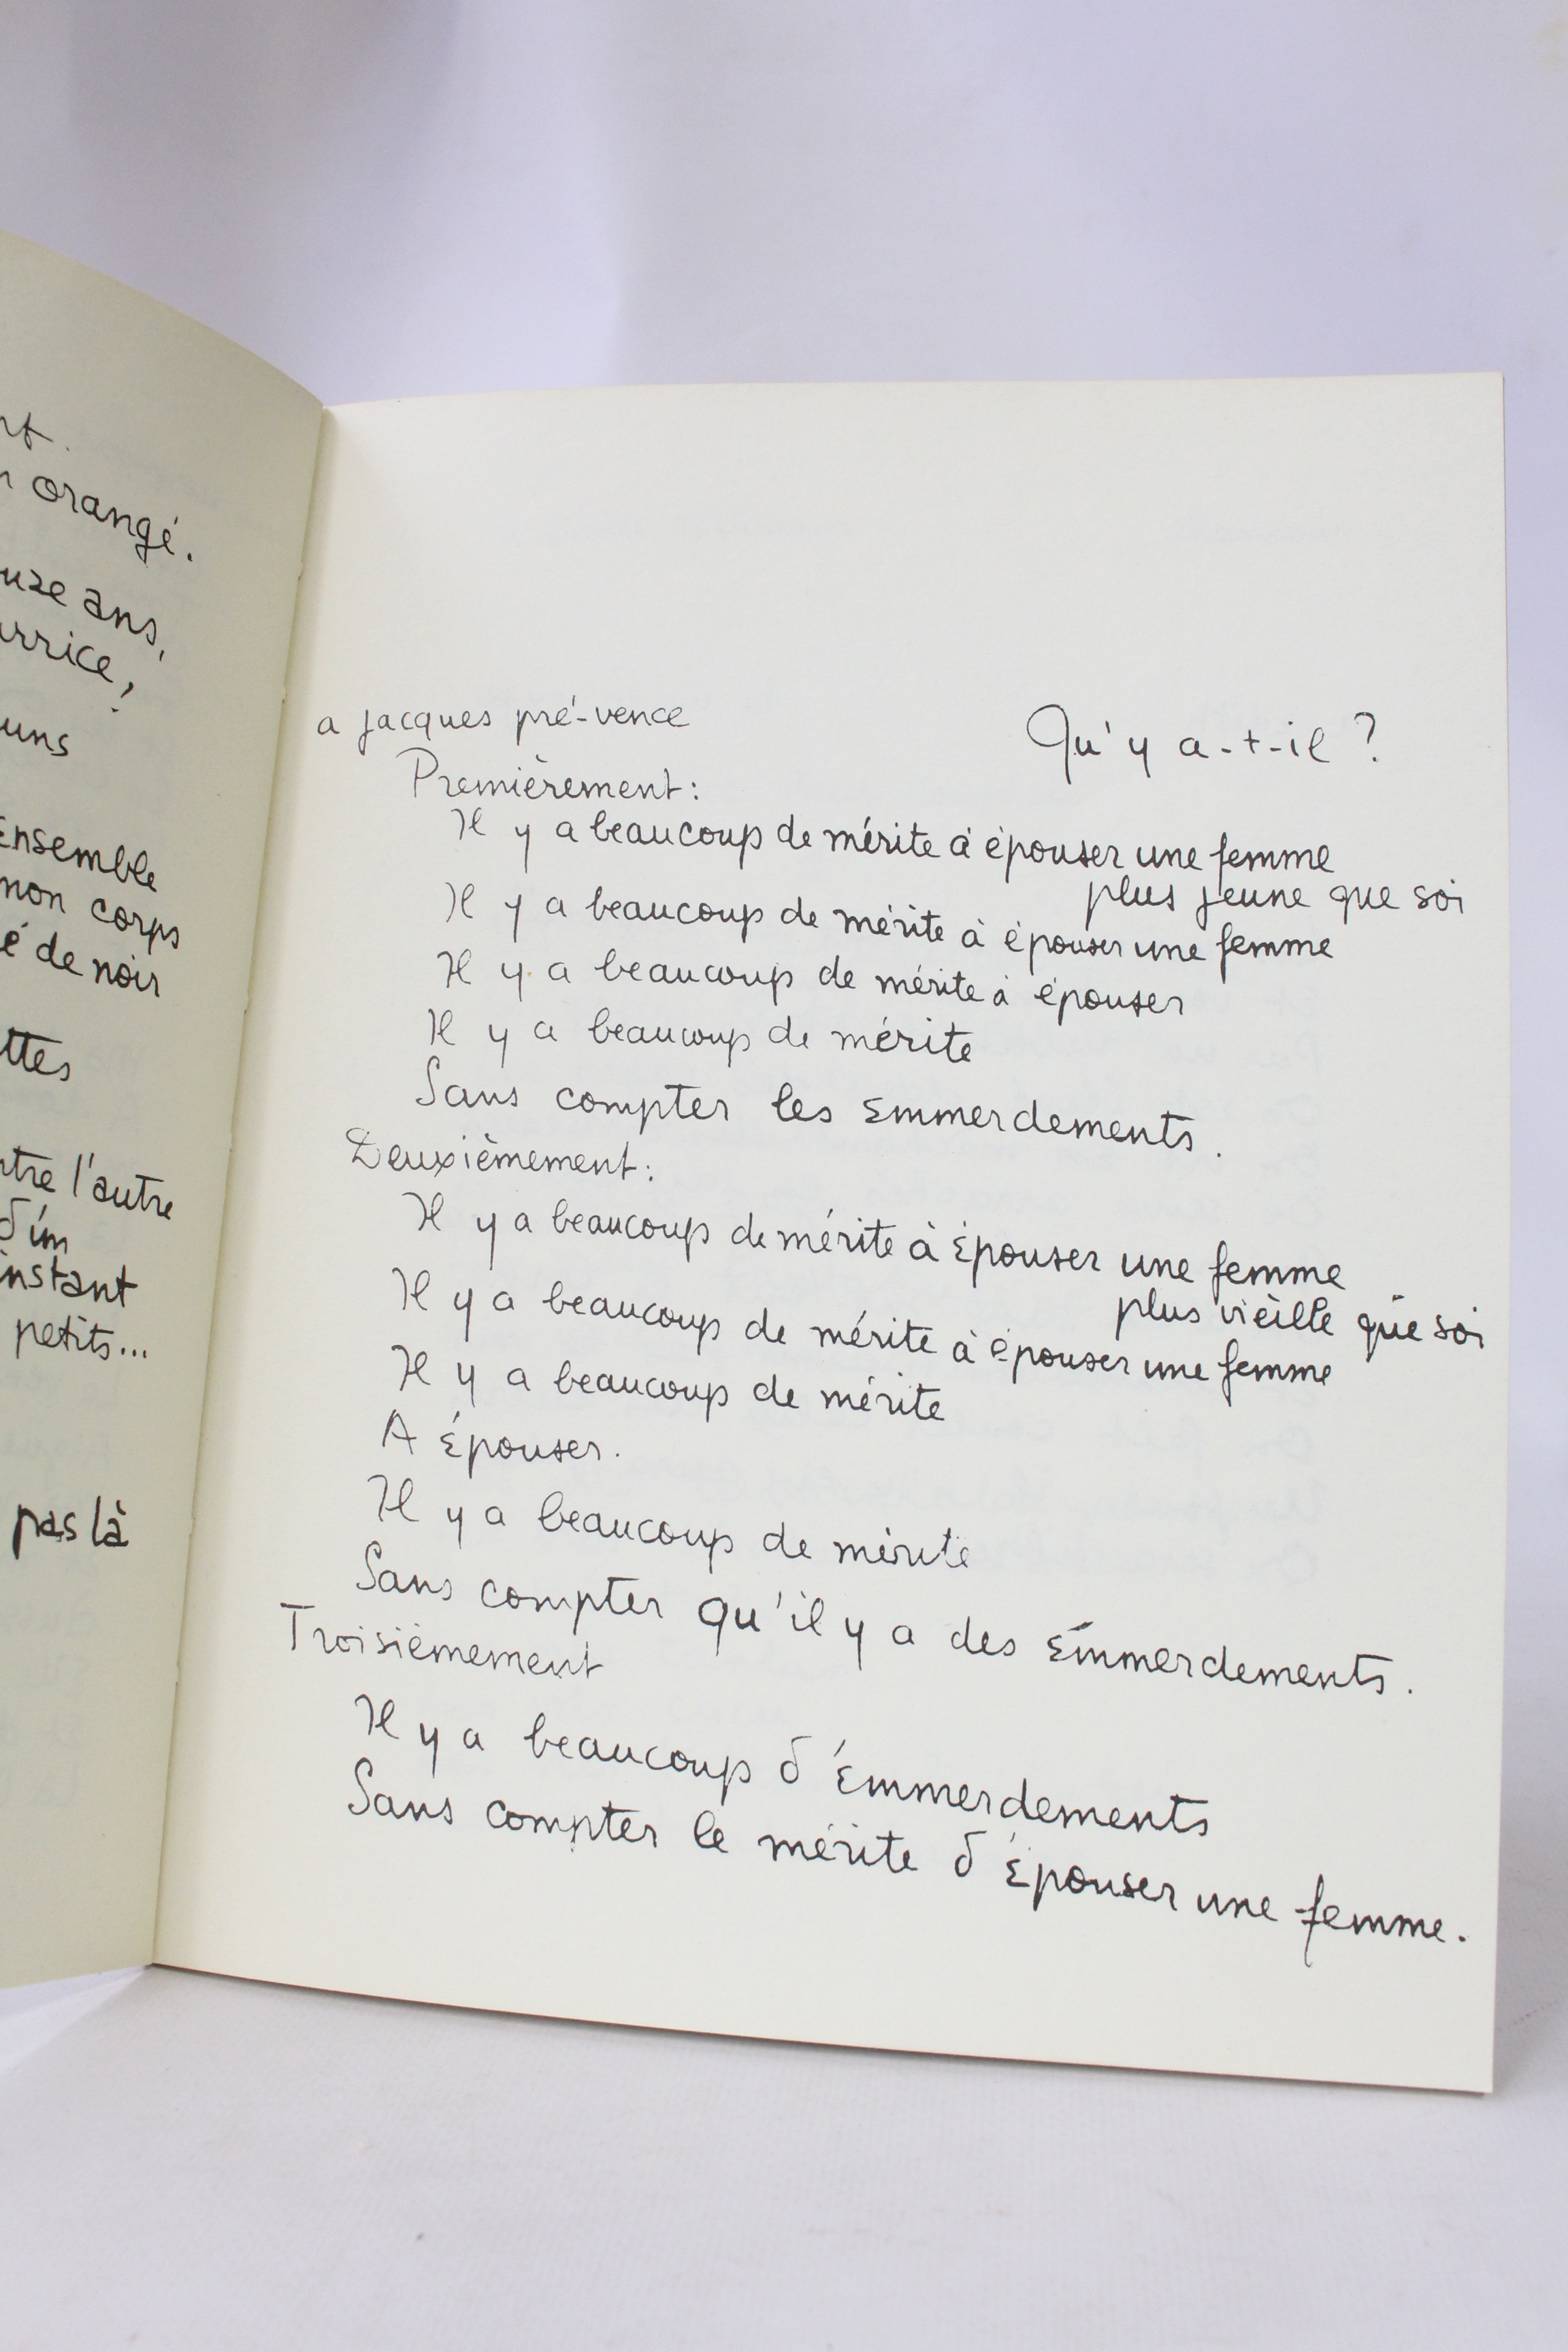 orangé.
ans,
uns
Ensemble
mon corps
de noir
l'autre
d'un
instant
petits...
pas là
a jacques pré-vence
Qu'y a-t-il ?
Premièrement :
Il y a beaucoup de mérite à épouser une femme
plus jeune que soi
Il y a beaucoup de mérite à épouser une femme
Il y a beaucoup de mérite à épouser
Il y a beaucoup de mérite
Sans compter les emmerdements.
Deuxièmement :
Il y a beaucoup de mérite à épouser une femme
plus vieille que soi
Il y a beaucoup de mérite à épouser une femme
Il y a beaucoup de mérite
A épouser.
Il y a beaucoup de mérite
Sans compter qu'il y a des emmerdements.
Troisièmement
Il y a beaucoup d'emmerdements
Sans compter le mérite d'épouser une femme.